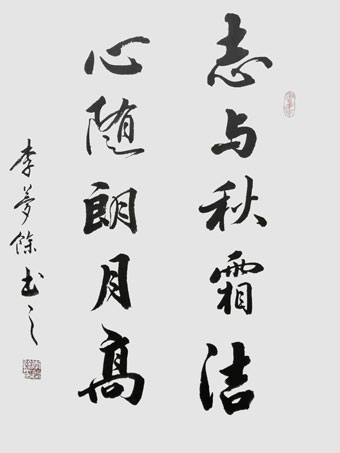 志与秋霜洁
心随朗月高
李梦馀书之